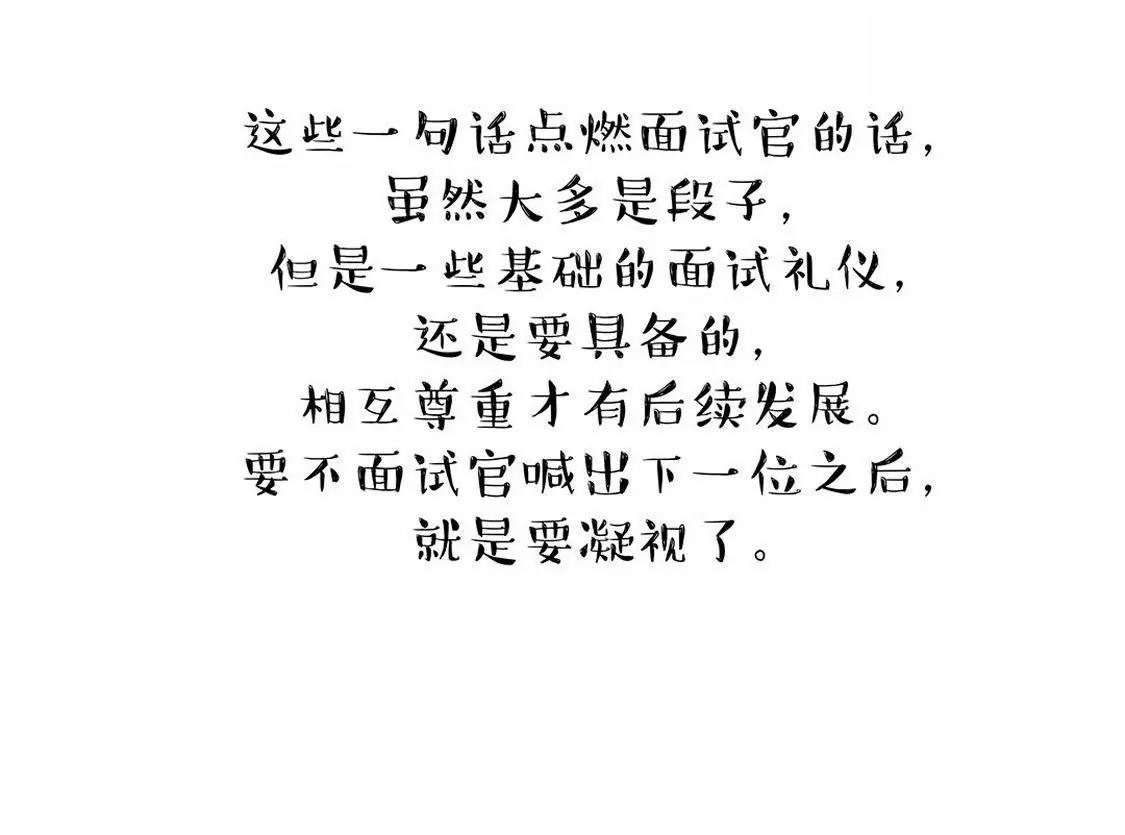 这些一句话点燃面试官的话，
虽然大多是段子，
但是一些基础的面试礼仪，
还是要具备的，
相互尊重才有后续发展。
要不面试官喊出下一位之后，
就是要凝视了。